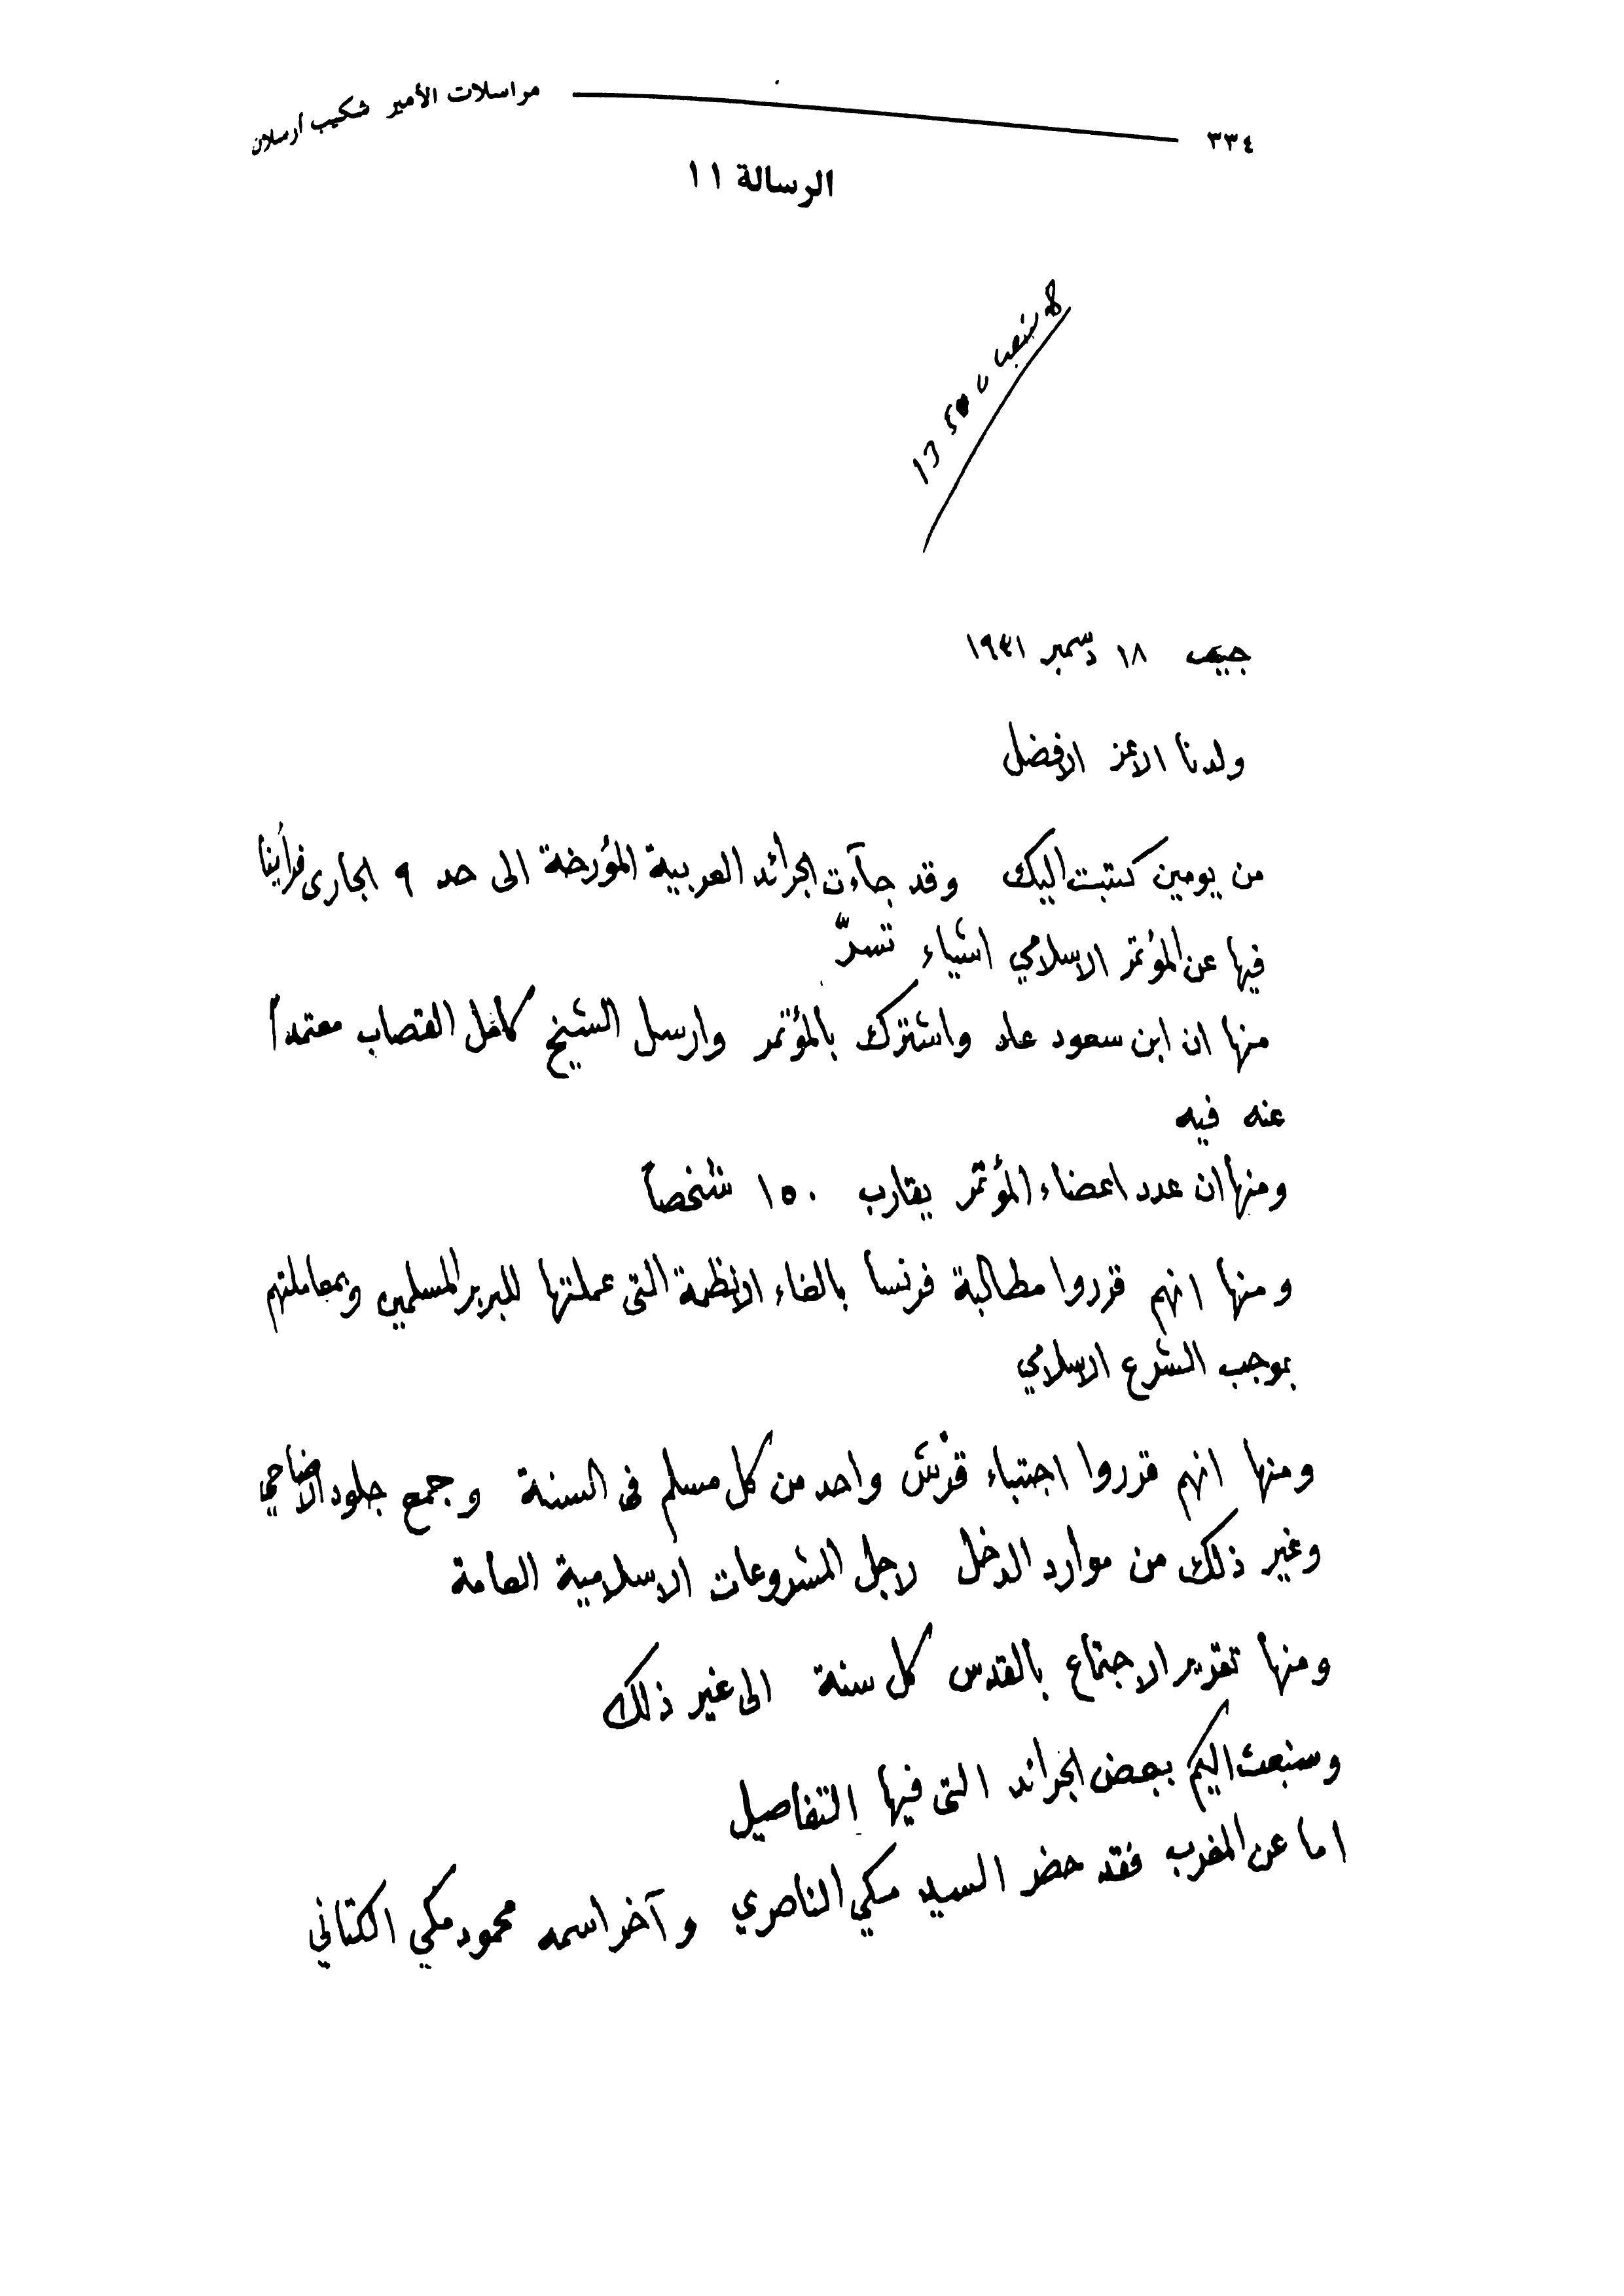 ٣٣٤ مراسلات الأمير شكيب أرسلان
الرسالة ١١
جنيف ١٨ دسمبر ١٩٣١
ولدنا الاعز الافضل
من يومين كتبت اليك وقد جآءت الجرائد العربية المؤرخة الى حد ٩ الجارى فرأينا
فيها عن المؤتمر الاسلامي اشياء تسرّ
منها ان ابن سعود عاد واشترك بالمؤتمر وارسل الشيخ كامل القصاب معتمداً
عنه فيه
ومنها ان عدد اعضاء المؤتمر يقارب ١٥٠ شخصاً
ومنها انهم قرروا مطالبة فرنسا بالغاء الانظمة التى عملتها للبربر المسلمين وبمعاملتهم
بموجب الشرع الاسلامي
ومنها انهم قرروا اجتباء قرش واحد من كل مسلم فى السنة وجمع جلود الاضاحي
وغير ذلك من موارد الدخل لاجل المشروعات الاسلامية العامة
ومنها تقرير الاجتماع بالقدس كل سنة الى غير ذلك
وسنبعث اليكم ببعض الجرائد التى فيها التفاصيل
اما عن المغرب فقد حضر السيد مكي الناصري وآخر اسمه محمود مكي الكتاني